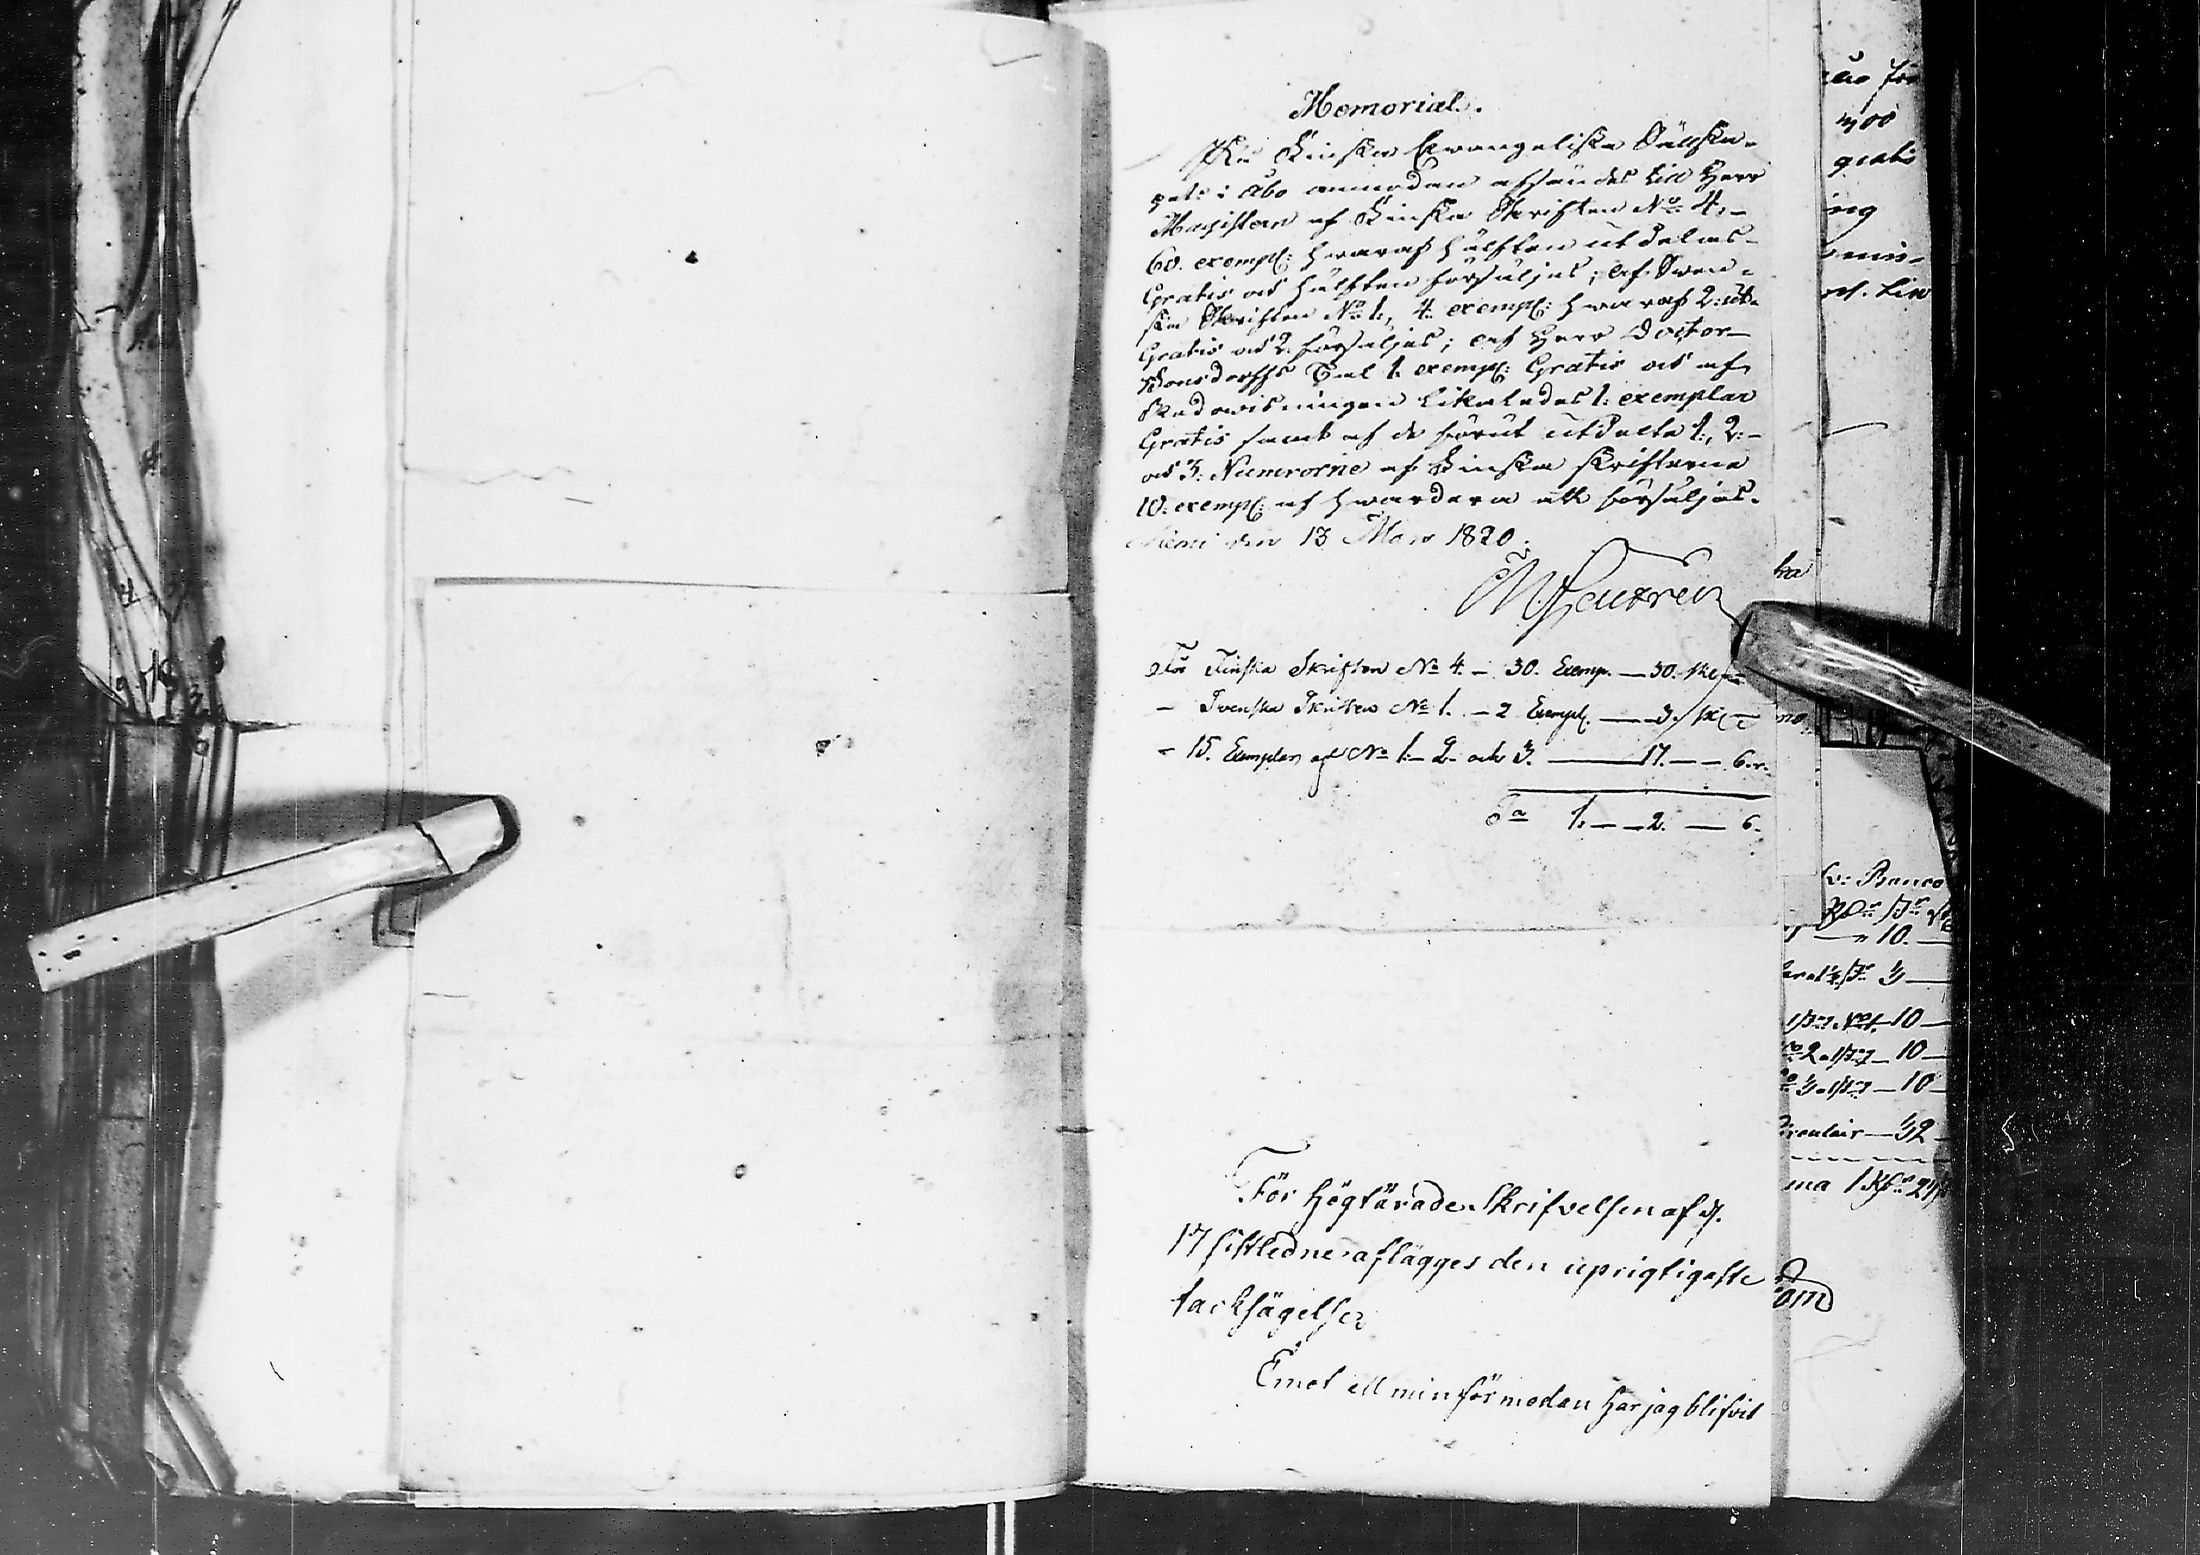 Memorial.
På Finska Evangeliska Sällska-
pets i Åbo anmodan afsändes till Herr
Magistern af Finska Skriften No 4. –
60. exempl: hvaraf hälften utdelas
Gratis och hälften försäljes; af Swen-
ska Skriften No 1., 4. exempl: hwaraf 2: ut-
Gratis och 2 försäljes; af Herr Doctor
Bonsdorffs Tal 1. exempl: Gratis och af
Redovisningen likaledes 1: exemplar
Gratis samt af de förut utdelta 1:, 2: –
och 3: Numrorne af Finska skrifterne
10: exempl: af hwardera att försäljas.
Kemi den 13 Mars 1820.
För Finska Skriften No 4. – 30. Exemp. — 30. sk
– Svenska Skriften No 1. – 2 Exempl. — 3. sk
– 15. Exemplar af No 1. – 2. och 3. — 17. — 6. r.
Sa 1. — 2. — 6.
För högtärade Skrifvelsen af d.
17 sistledne aflägges den uprigtigaste
tacksägelse
Emot all min förmodan har jag blifvit
400
gratis
ing
Banco
10. —
10 —
10 —
10 —
Circulair — 32
om